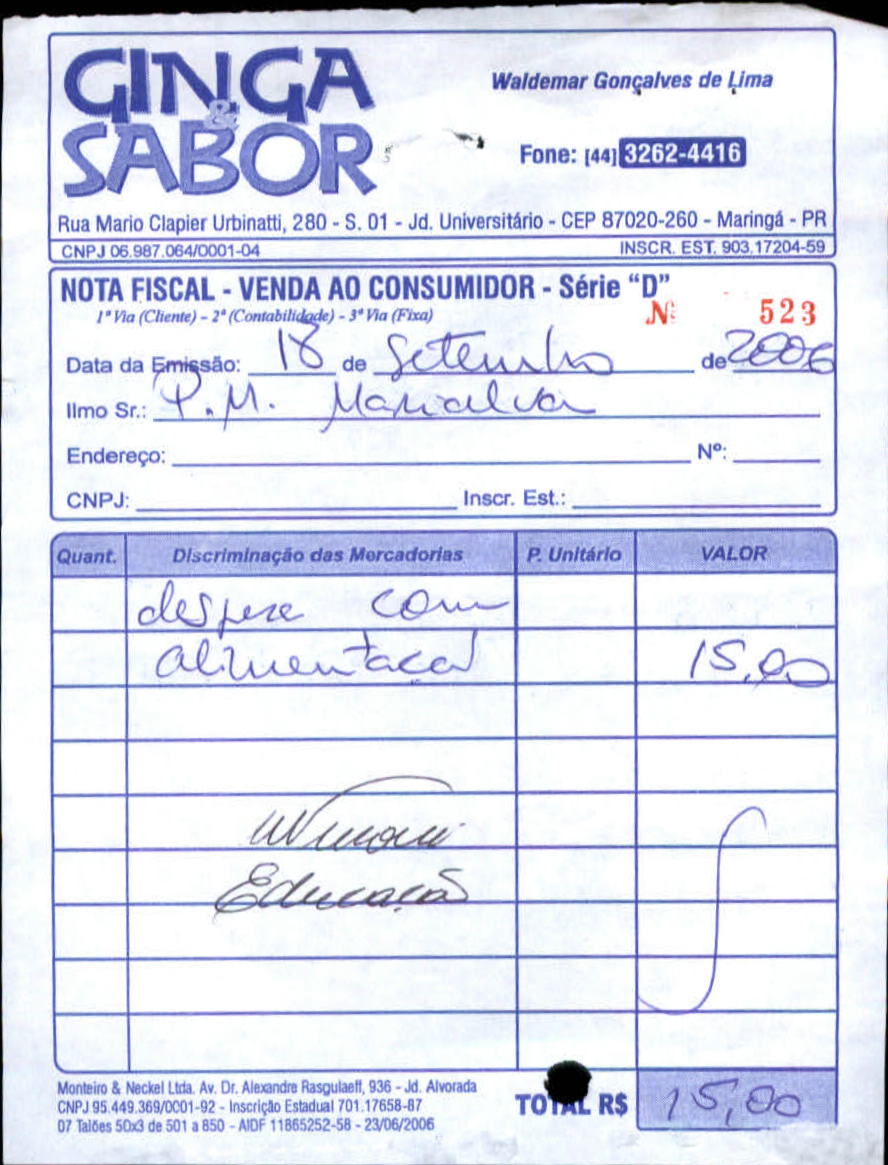 GINGA
&
SABOR
Waldemar Gonçalves de Lima
Fone: [44] 3262-4416
Rua Mario Clapier Urbinatti, 280 - S. 01 - Jd. Universitário - CEP 87020-260 - Maringá - PR
CNPJ 06.987.064/0001-04 INSCR. EST. 903.17204-59
NOTA FISCAL - VENDA AO CONSUMIDOR - Série "D"
1ª Via (Cliente) - 2ª (Contabilidade) - 3ª Via (Fixa) Nº 523
Data da Emissão: 18 de Setembro de 2006
Ilmo Sr.: P.M. Marialva
Endereço: Nº:
CNPJ: Inscr. Est.:
Quant. Discriminação das Mercadorias P. Unitário VALOR
despesa com
alimentação 15,00
Educação
Monteiro & Neckel Ltda. Av. Dr. Alexandre Rasgulaeff, 936 - Jd. Alvorada
CNPJ 95.449.369/0001-92 - Inscrição Estadual 701.17658-87
07 Talões 50x3 de 501 a 850 - AIDF 11865252-58 - 23/06/2006
TOTAL R$ 15,00